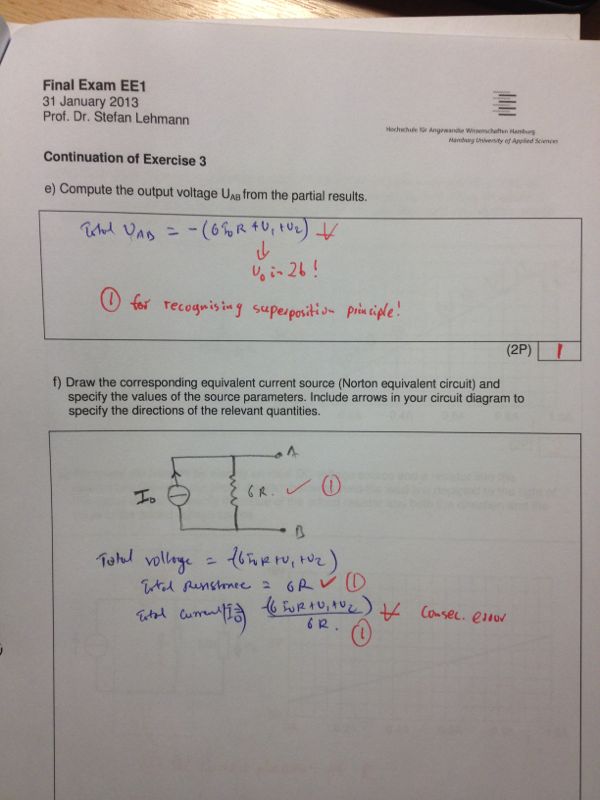 Final Exam EE1
31 January 2013
Prof. Dr. Stefan Lehmann
Hochschule für Angewandte Wissenschaften Hamburg
Hamburg University of Applied Sciences
Continuation of Exercise 3
e) Compute the output voltage UAB from the partial results.
Total UAB = -(6I0R + U1 + U2)
U0 in 2b!
1 for recognising superposition principle!
(2P) 1
f) Draw the corresponding equivalent current source (Norton equivalent circuit) and
specify the values of the source parameters. Include arrows in your circuit diagram to
specify the directions of the relevant quantities.
A
I0 6R. ✓ 1
B
Total voltage = -(6I0R+U1+U2)
Total Resistance = 6R ✓ 1
Total Current -(6I0R+U1+U2) Consec. error
6R. 1